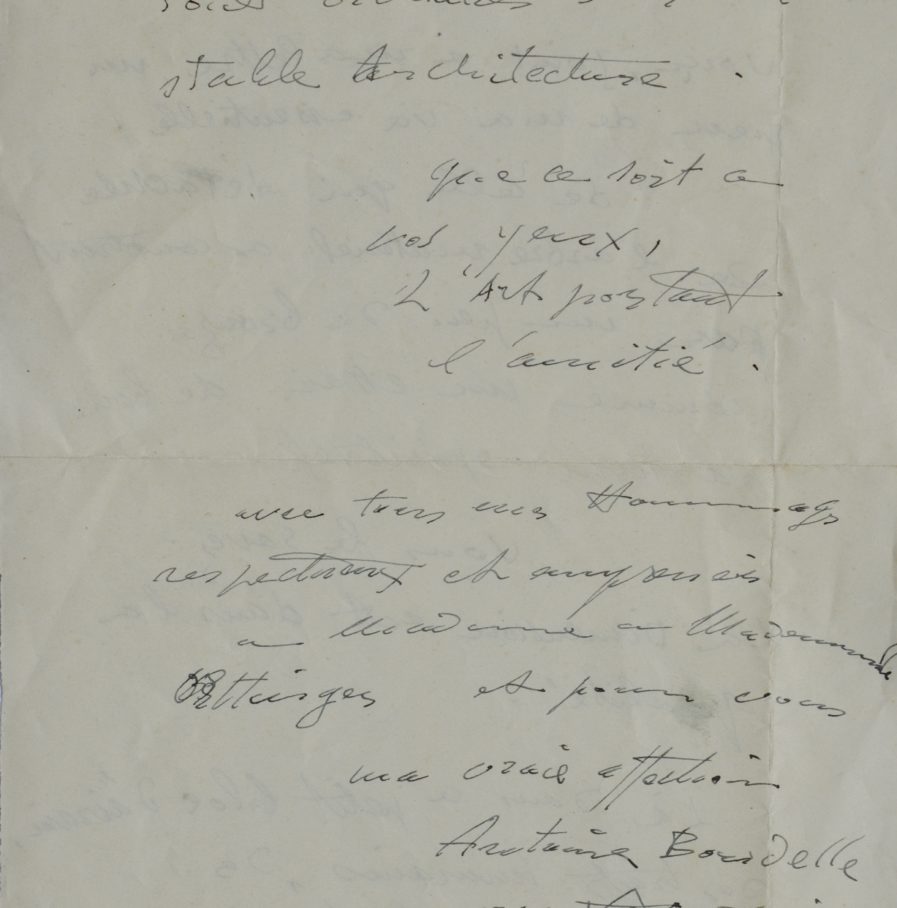 stable Architecture .
que ce soit a
vos yeux,
L'Art portant
l'amitié .
avec tous mes Hommages
respectueux et empressés
a Madame a Mademoiselle
Ottinger et pour vous
ma vraie affection
Antoine Bourdelle